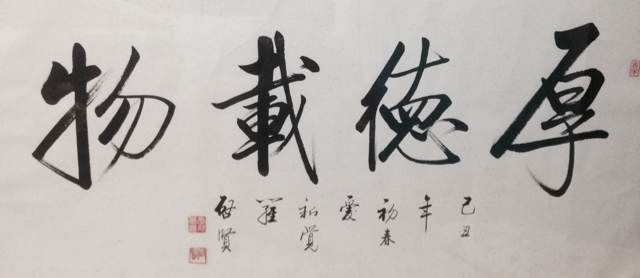 厚德載物
己丑年初春愛新覺羅啓賢